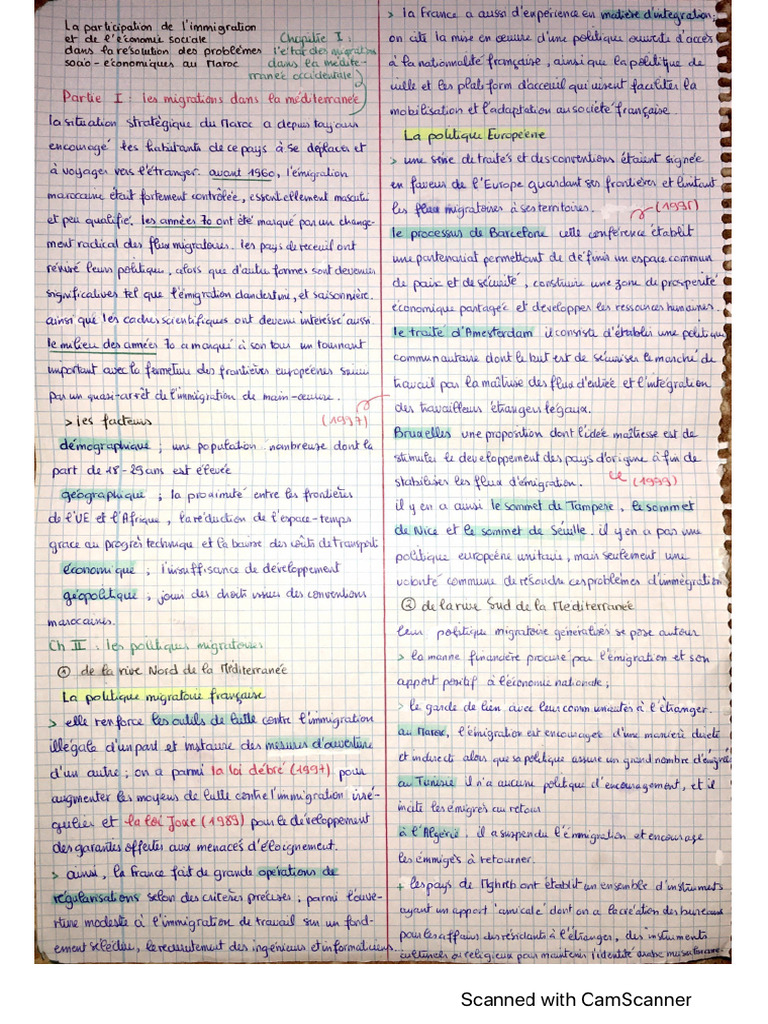 La participation de l'immigration
et de l'économie sociale
dans la résolution des problèmes
socio-économiques au Maroc
Chapitre I :
l'état des migrations
dans la médite-
rranée occidentale
Partie I : les migrations dans la méditerranée
la situation stratégique du Maroc a depuis toujours
encouragé les habitants de ce pays à se déplacer et
à voyager vers l'étranger. avant 1960, l'émigration
marocaine était fortement contrôlée, essentiellement masculi
et peu qualifié. les années 70 ont été marqué par un change-
ment radical des flux migratoires. les pays de receuil ont
révisé leurs politique, alors que d'autre formes sont devenus
significatives tel que l'émigration clandestine, et saisonnière.
ainsi que les cadres scientifiques ont devenu intéressé aussi.
le milieu des années 70 a marqué à son tous un tournant
important avec la fermeture des frontières européenes suivu
par un quasi-arrêt de l'immigration de main-oeuvre.
> les facteurs
(1997)
démographique ; une population nombreuse dont la
part de 18-29 ans est élevée
géographique ; la proximité entre les frontières
de l'UE et l'Afrique, la réduction de l'espace-temps
grace au progrès technique et la baisse des coûts de transport
économique ; l'insuffisance de développement
géopolitique ; jouir des droits issues des conventions
marocaines.
Ch II : les politiques migratoires
① de la rive Nord de la Méditerranée
La politique migratoire française
> elle renforce les outils de lutte contre l'immigration
illégale d'un part et instaure des mesures d'ouverture
d'un autre ; on a parmi la loi débré (1997) pour
augmenter les moyens de lutte contre l'immigration irré-
gulier et la loi Joxe (1989) pour le développement
des garanties offertes aux menacés d'éloignement.
> ainsi, la France fait de grande opérations de
régularisations selon des critères précises ; parmi l'ouve-
rture modeste à l'immigration de travail sur un fond-
ement sélective, le recrutement des ingénieurs et informaticiens
> la France a aussi d'expérience en matière d'intégration ;
on cite la mise en oeuvre d'une politique ouverte d'accès
à la nationalité française, ainsi que la politique de
ville et les platform d'acceuil qui visent faciliter la
mobilisation et l'adaptation au société française.
La politique Européene
> une série de traités et des conventions étaient signée
en faveur de l'Europe guardant ses frontières et limitant
les flux migratoires à ses territoires.
(1995)
le processus de Barcelone cette conférence établit
une partenariat permettant de définir un espace commun
de paix et de sécurité, construire une zone de prosperité
économique partagée et développer les ressources humaines.
le traité d'Amesterdam il consiste d'établir une politique
communautaire dont le but est de sécuriser le marché de
travail par la maîtrise des flux d'entrée et l'intégration
des travailleurs étrangers légaux.
Bruxelles une proposition dont l'idée maîtresse est de
stimuler le développement des pays d'origine à fin de
stabiliser les flux d'émigration.
(1999)
il y en a aussi le sommet de Tampere, le sommet
de Nice et le sommet de Séville. il y en a pas une
politique européene unitaire, mais seulement une
volonté commune de résoudre ces problèmes d'immégration
② de la rive Sud de la Mediterranée
leur politique migratoire généralisés se pose autour
> la manne financière procuré par l'émigration et son
apport positif à l'économie nationale ;
> le garde de lien avec leur communautés à l'étranger.
au Maroc, l'émigration est encouragée d'une manière directe
et indirecte alors que sa politique assure un grand nombre d'émigré
au Tunisie il n'a aucune politique d'encouragement, et il
incite les émigrés au retour
à l'Algérie, il a suspendu l'émmigration et encourage
les émmigés à retourner.
+ les pays de Mghreb ont établit un ensemble d'instruments
ayant un apport "amicale" dont on a la création des bureaux
pour les affairs des résidants à l'étranger, des instruments
culturels ou religieux pour maintenir l'identité arabe musulmane.
Scanned with CamScanner